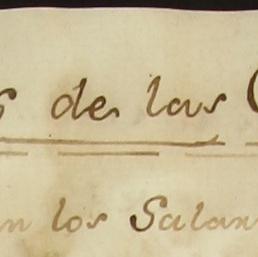 s de las
n los Salan